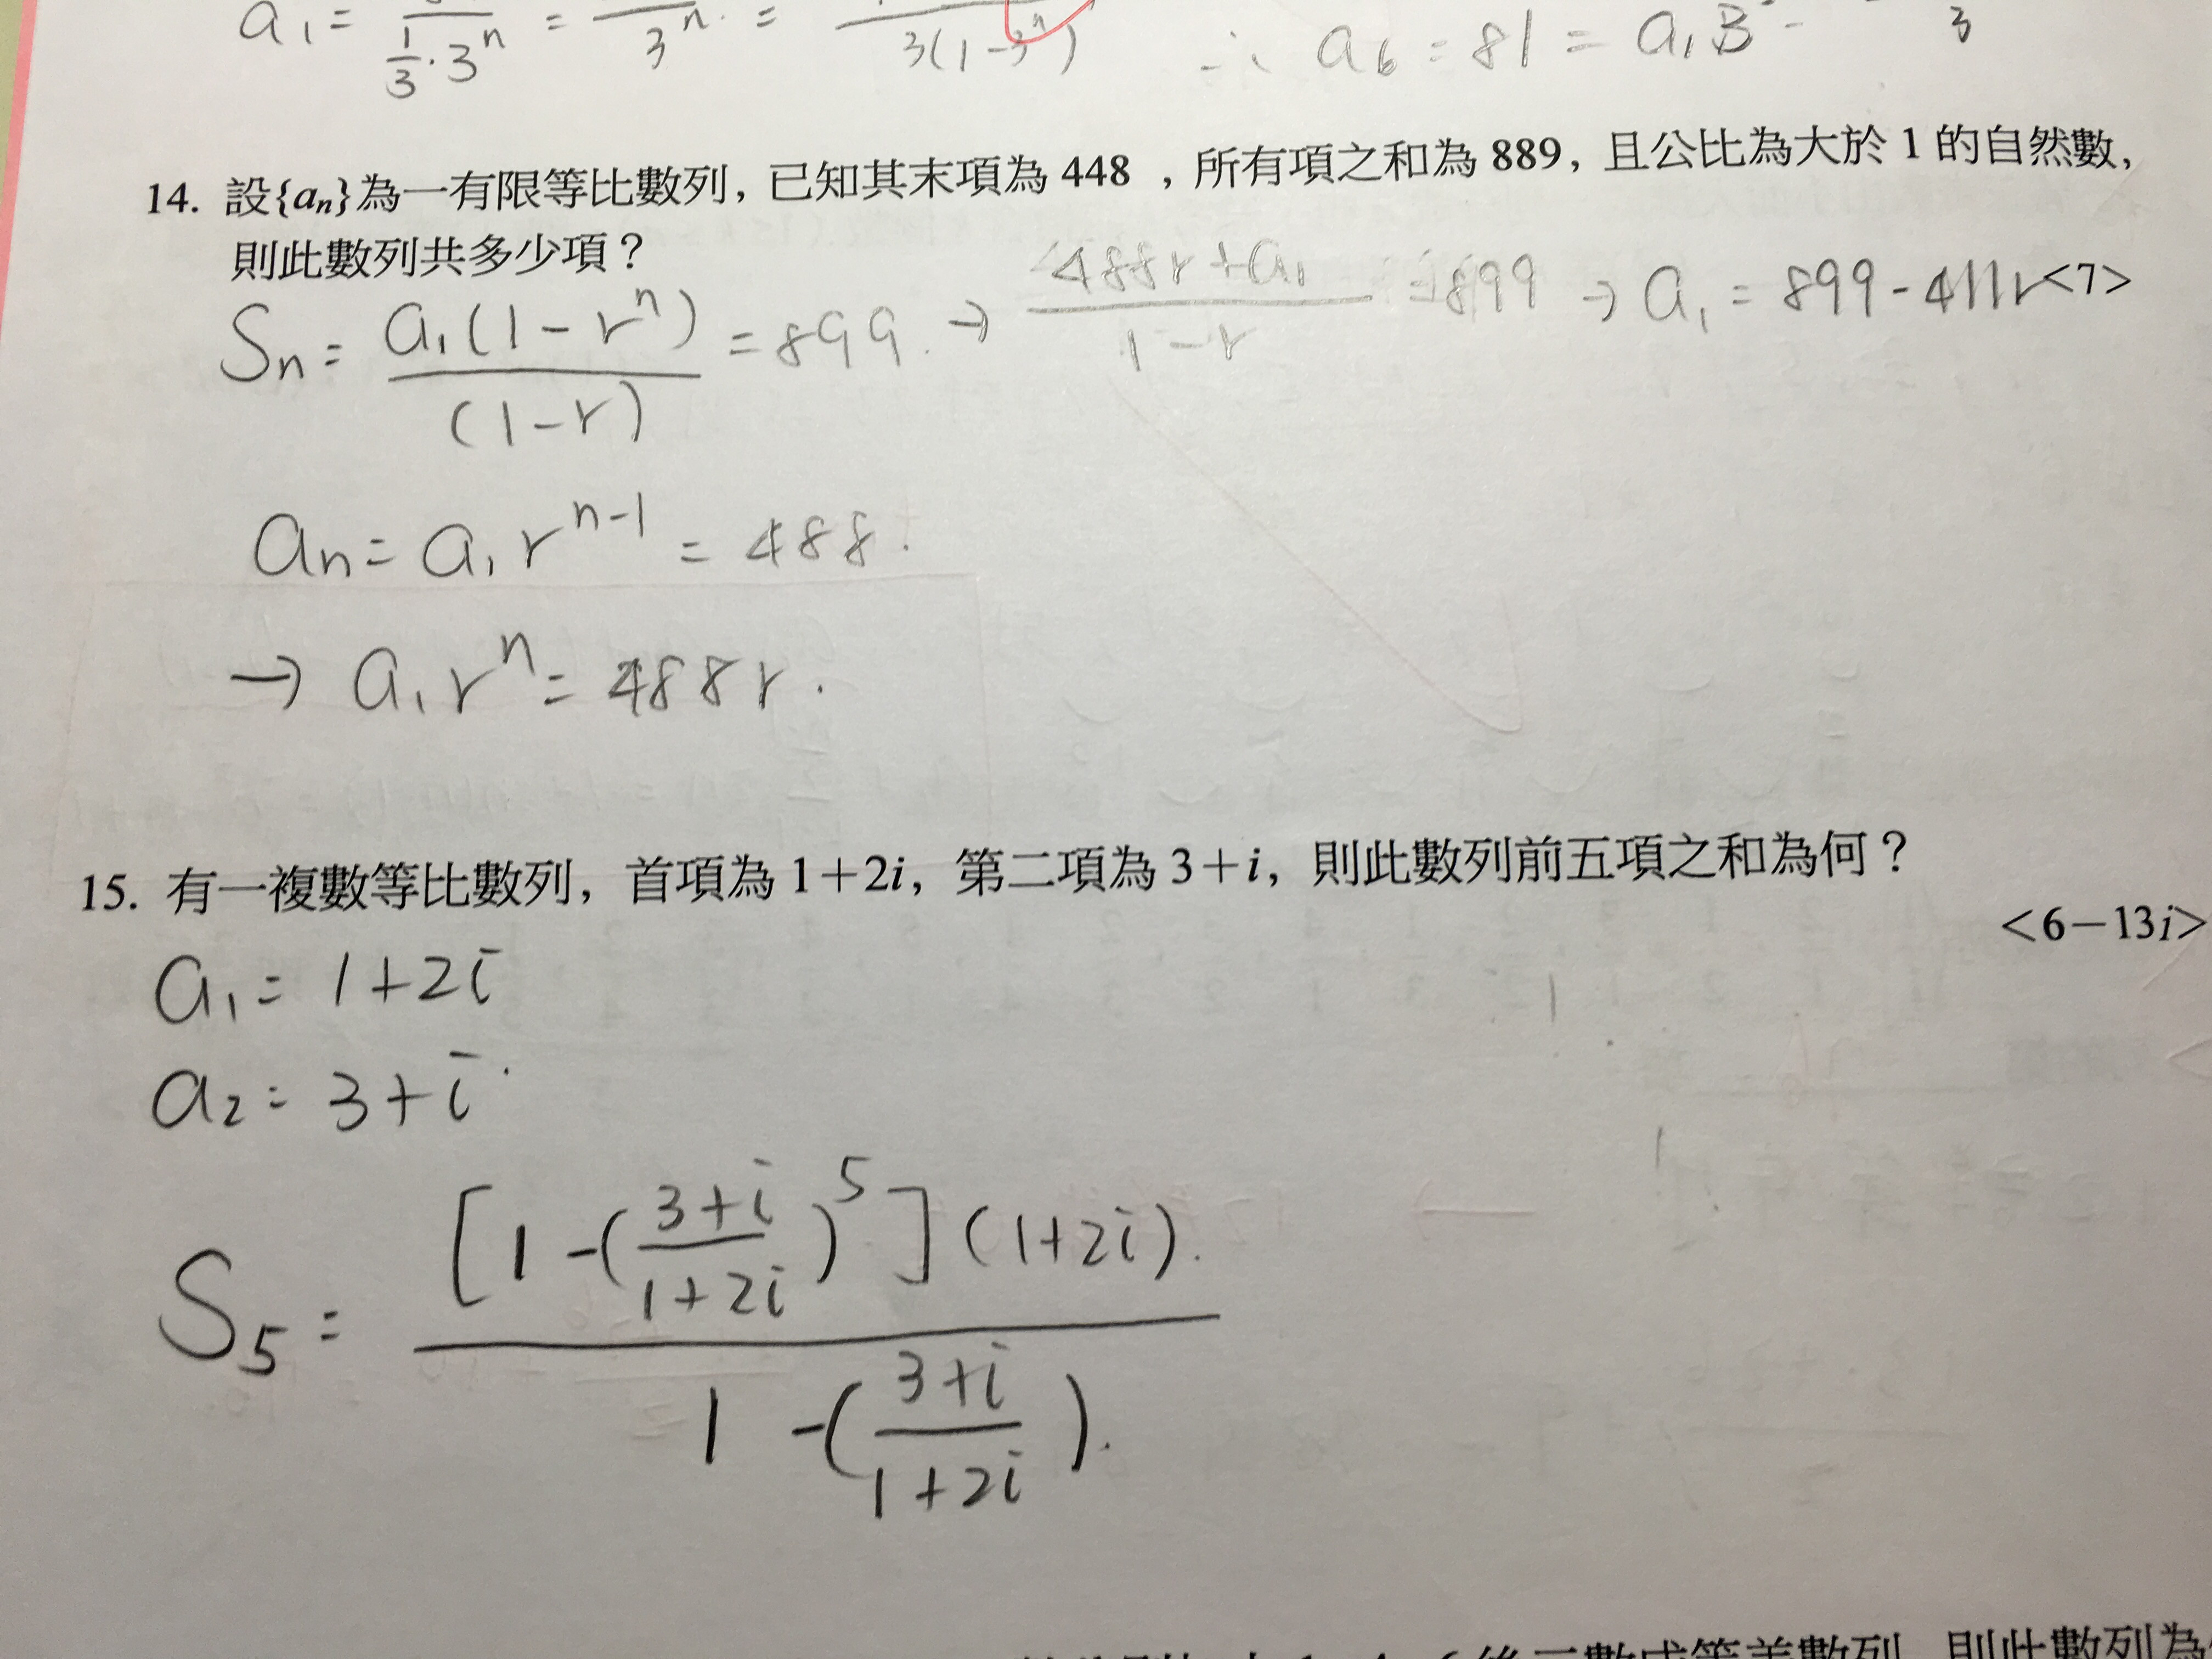 a₁ = 1/3·3ⁿ = 3ⁿ = 3(1-3ⁿ) ∴ a₆ = 81 = a₁ 3
14. 設{aₙ}為一有限等比數列, 已知其末項為 448 , 所有項之和為 889, 且公比為大於 1 的自然數,
則此數列共多少項？
<7>
Sₙ = a₁(1-rⁿ)/(1-r) = 899. → (488r+a₁)/(1-r) = 899 → a₁ = 899-411r
aₙ = a₁rⁿ⁻¹ = 488.
→ a₁rⁿ = 488r.
15. 有一複數等比數列, 首項為 1+2i, 第二項為 3+i, 則此數列前五項之和為何？
<6-13i>
a₁ = 1+2i
a₂ = 3+i
S₅ = [1-((3+i)/(1+2i))⁵](1+2i)./1-((3+i)/(1+2i)).